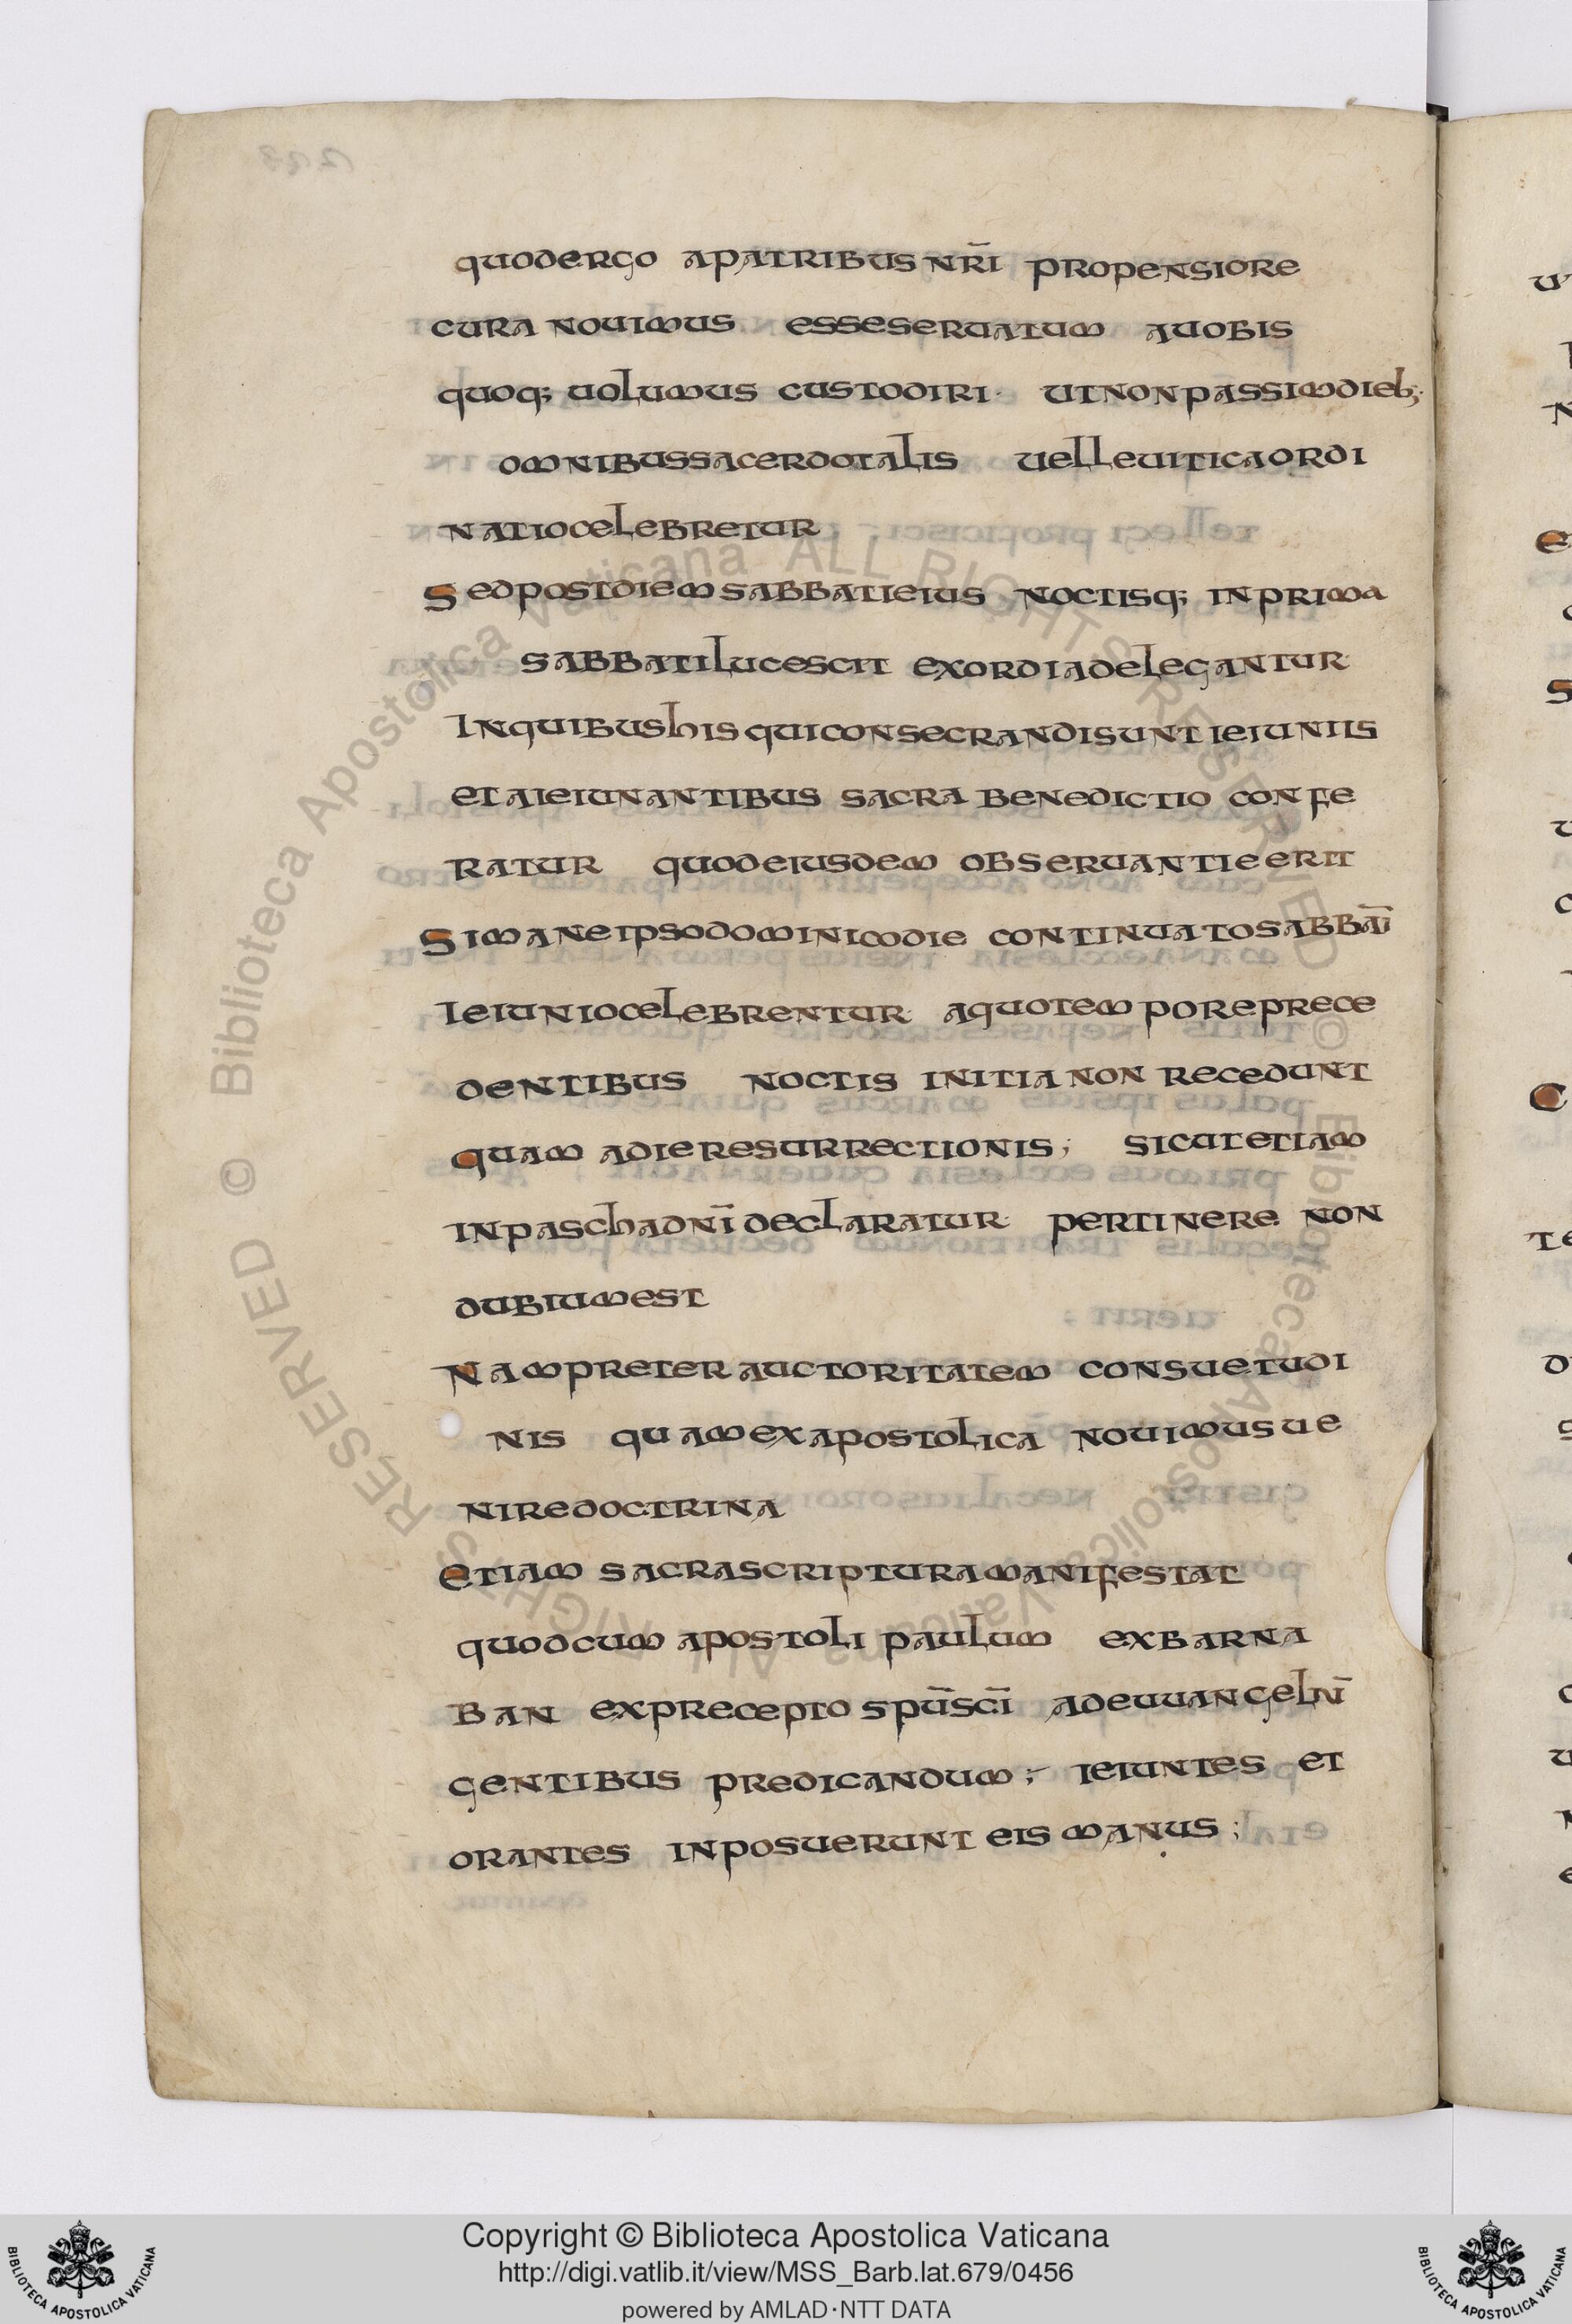 quodergo apatribus nr̄i propensiore
cura nouimus esseseruatum auobis
quoq; uolumus custodiri · utnonpassimdieb;·
omnibussacerdotalis uelleuiticaordi
natiocelebretur
Sedpostdiemsabbatieius noctisq; inprima
sabbatilucescit exordiadelegantur
Inquibushisquiconsecrandisunt ieiuniis
etaieiunantibus sacra benedictio confe
ratur quodeiusdem obseruantieerit
Simaneipsodominicodie continuatosabbat̄i
Ieiuniocelebrentur aquotemporeprece
dentibus noctis initianon recedunt
quam adieresurrectionis; sicutetiam
inpaschadn̄ideclaratur pertinere non
dubiumest
Nampreterauctoritatem consuetudi
nis quamexapostolica nouimusue
niredoctrina
Etiam sacrascripturamanifestat
quodcum apostoli paulum exbarna
ban exprecepto sp̄usc̄i adeuuangeliū
gentibus predicandum; ieiuntes et
orantes inposuerunt eis manus;
© Biblioteca Apostolica Vaticana ALL RIGHTS RESERVED © Biblioteca Apostolica Vaticana ALL RIGHTS RESERVED
Copyright © Biblioteca Apostolica Vaticana
http://digi.vatlib.it/view/MSS_Barb.lat.679/0456
powered by AMLAD·NTT DATA
BIBLIOTECA APOSTOLICA VATICANA
BIBLIOTECA APOSTOLICA VATICANA